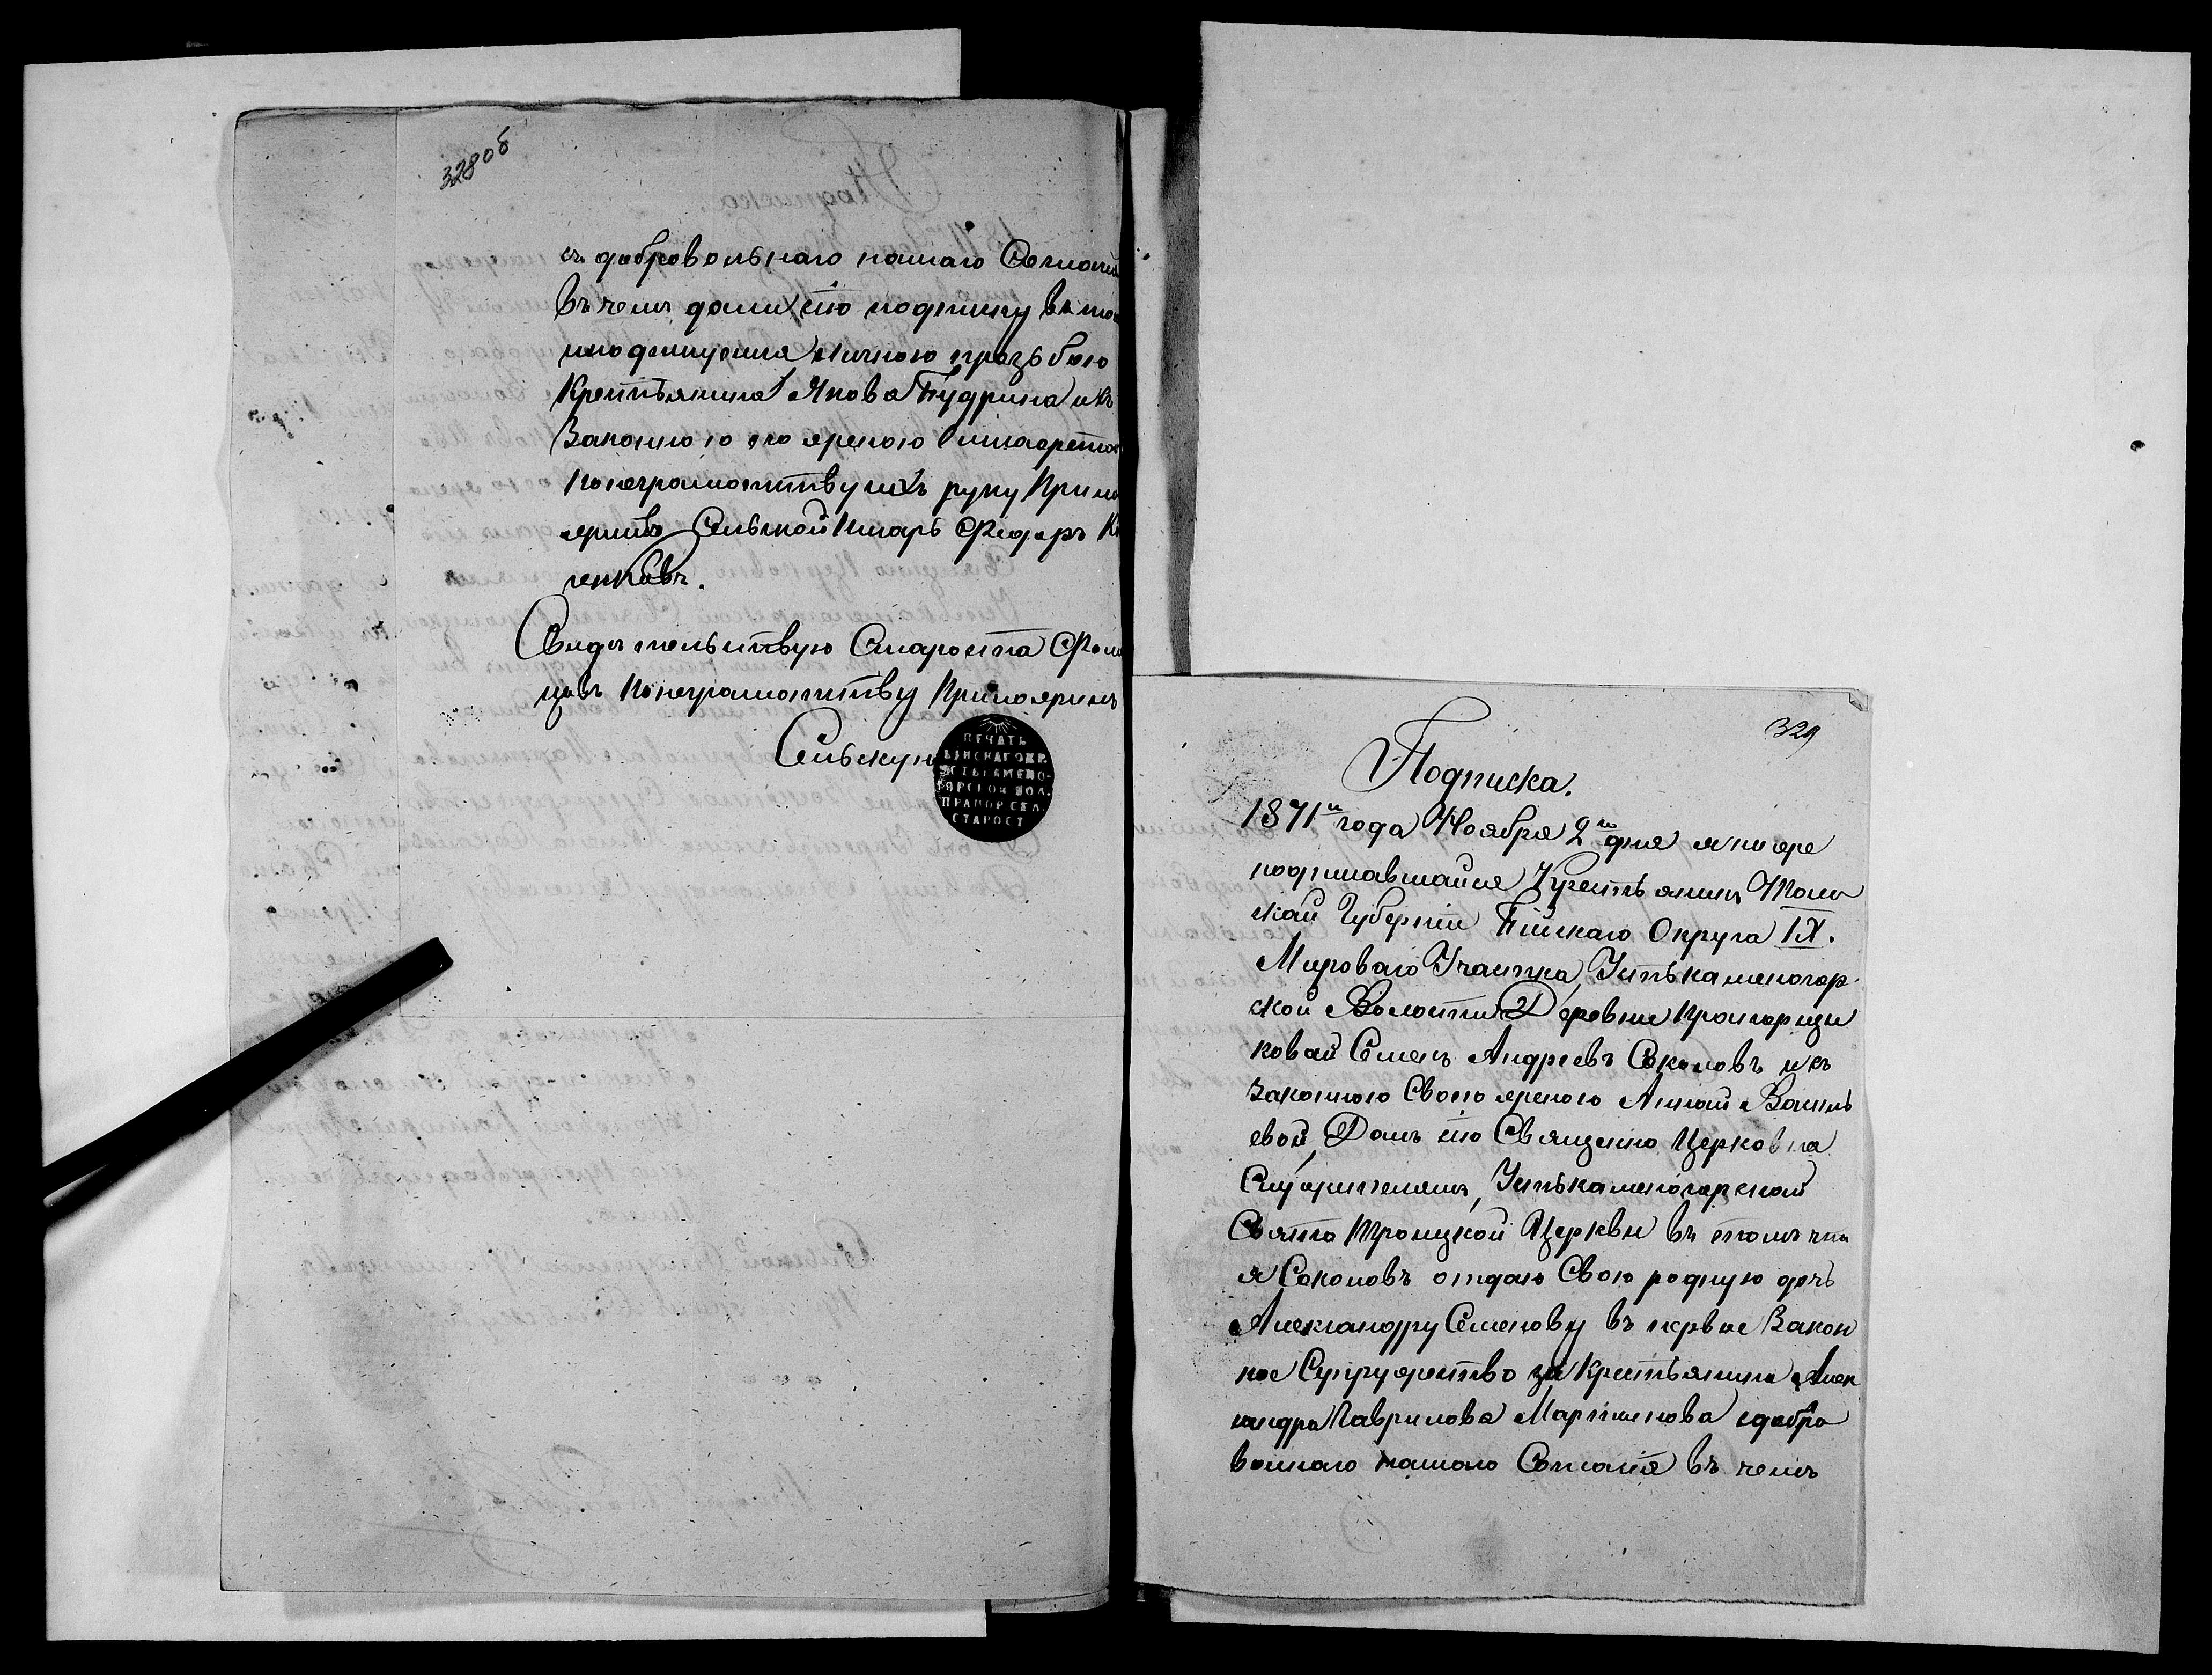 328 об
съ добровольнаго нашаго Согласи
въ чемъ дали сію подписку въ то
и подпишуемся личною прозьбою
Крестьянина Якова Будрина и съ
Законною его женою
По неграмотству ихъ руку Прило
жилъ Сельской Писарь Федоръ К
ченковъ.
Свидетельствую Староста Фоми
цовъ По неграмотству Приложилъ
Сельскую
ПЕЧАТЬ
БІЙСКАГО ОКР.
УСТЬКАМЕНО-
ГОРСКОЙ ВОЛ.
ПРАПОР СЕЛ.
СТАРОСТ
329
Подписка.
1871го года Ноября 2го дня я ниже
подписавшайся Крестьянинъ Томс
кай Губерніи Бійскаго Округа IX.
Мироваго Участка, Устькаменогор
ской Волости Деревни Прапорщи
ковай Семенъ Андреевъ Соколовъ и съ
Законною Своею женою Анной Василь
евой, Далъ сію Священно Церковна
Служителямъ, Устькаменогорской
Свято Троицкой Церкви въ томъ что
я Соколовъ отдаю Свою родную дочь
Александру Семенову въ первое Закон
ное Супружество за Крестьянина Алек
сандра Гаврилова Мартинова сдобро
вольнаго нашаго Согласія въ чемъ